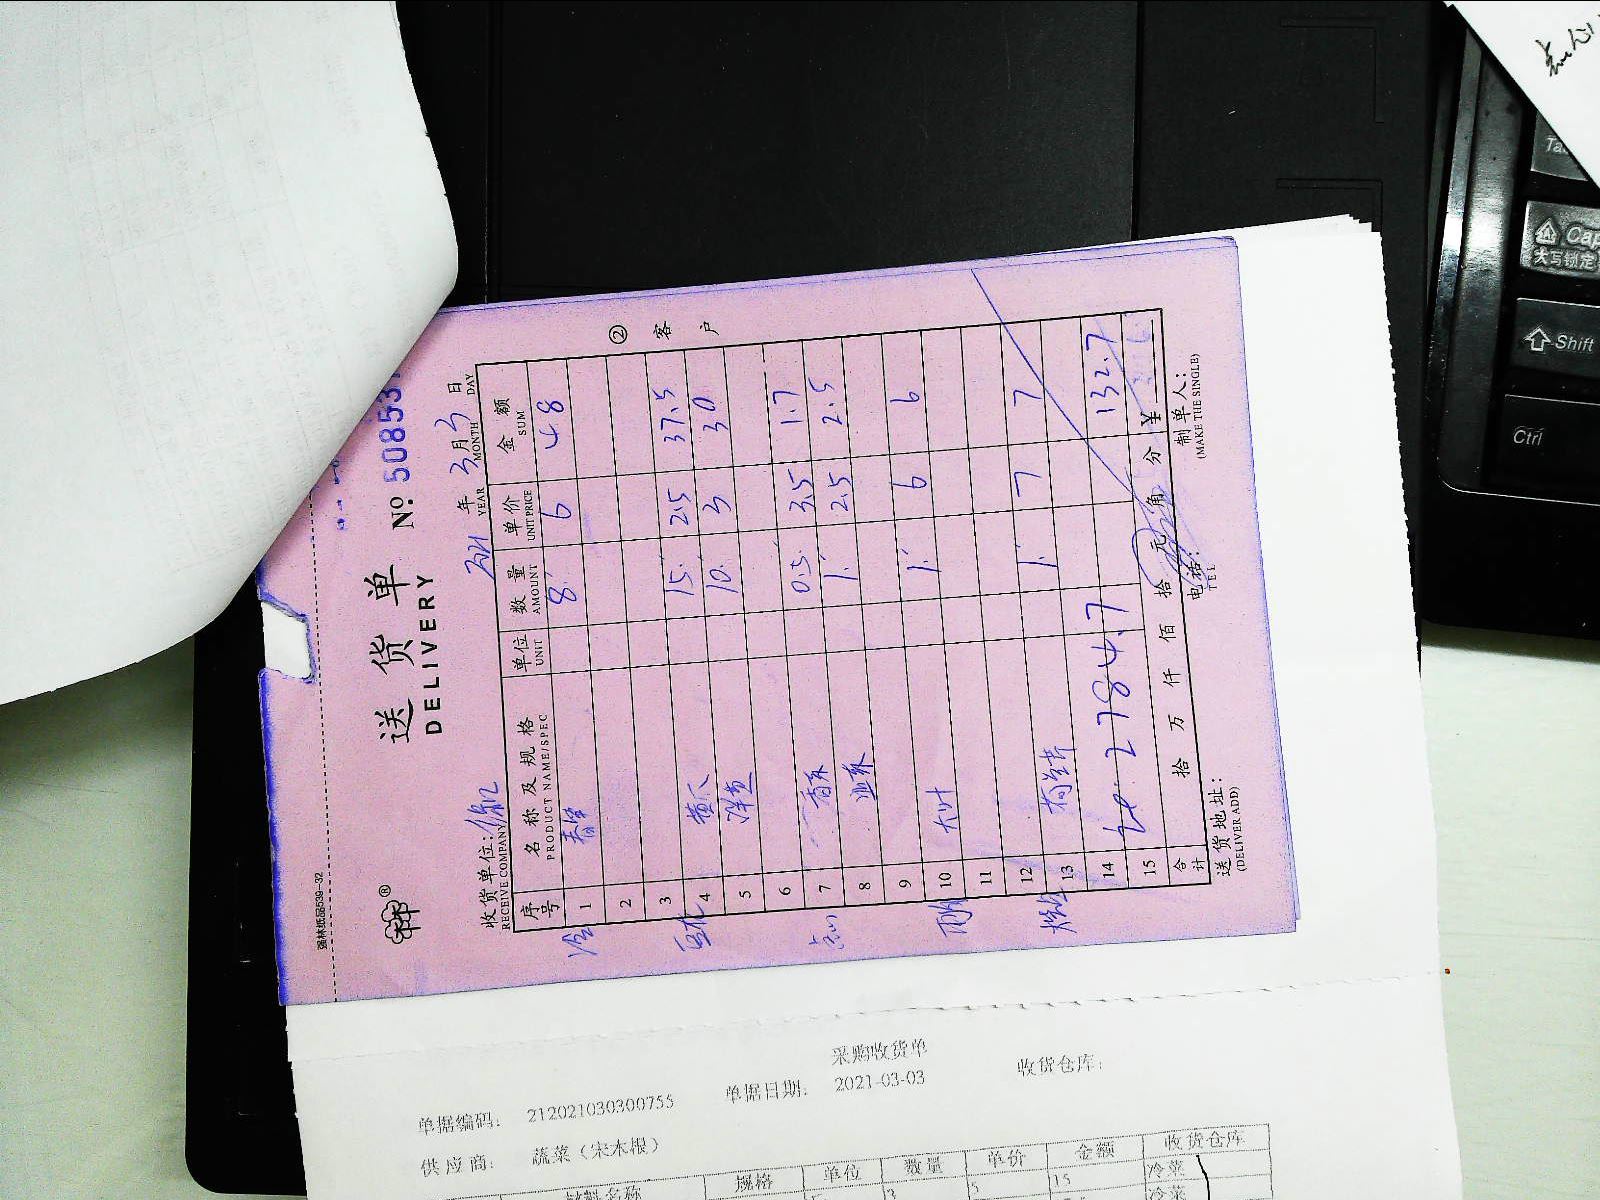 强林纸品539-32
送货单 No. 508537
DELIVERY
收货单位:
RECEIVE COMPANY
2021 年 3 月 3 日
YEAR MONTH DAY
序号 名称及规格 单位 数量 单价 金额
PRODUCT NAME/SPEC UNIT AMOUNT UNIT PRICE SUM
② 客户
1 8. 6 48
2
3 15. 2.5 37.5
4 黄瓜 10. 3 30
5 洋芋
6 0.5. 3.5 1.7
7 香菜 1. 2.5 2.5
8
9 1. 6 6
10 大叶
11
12 1. 7 7
13
14 132.7
15 2784.7
合计 拾 万 仟 佰 拾 元 角 分 ¥
送货地址:
(DELIVER ADD)
电话:
TEL
制单人:
(MAKE THE SINGLE)
采购收货单
单据编码: 212021030300755 单据日期: 2021-03-03 收货仓库:
供应商: 蔬菜(宋木根)
材料名称 规格 单位 数量 单价 金额 收货仓库
3 5 15 冷菜
冷菜
Cap
大写锁定
Shift
Ctrl